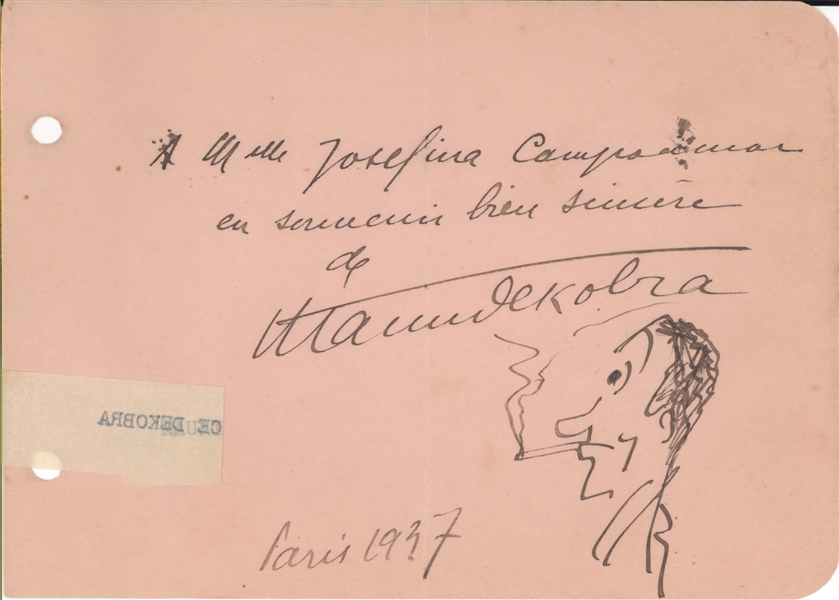 A Mlle Josefina Campoamor
en souvenir bien sincère
de
Maurice Dekobra
CE DEKOBRA
Paris 1937